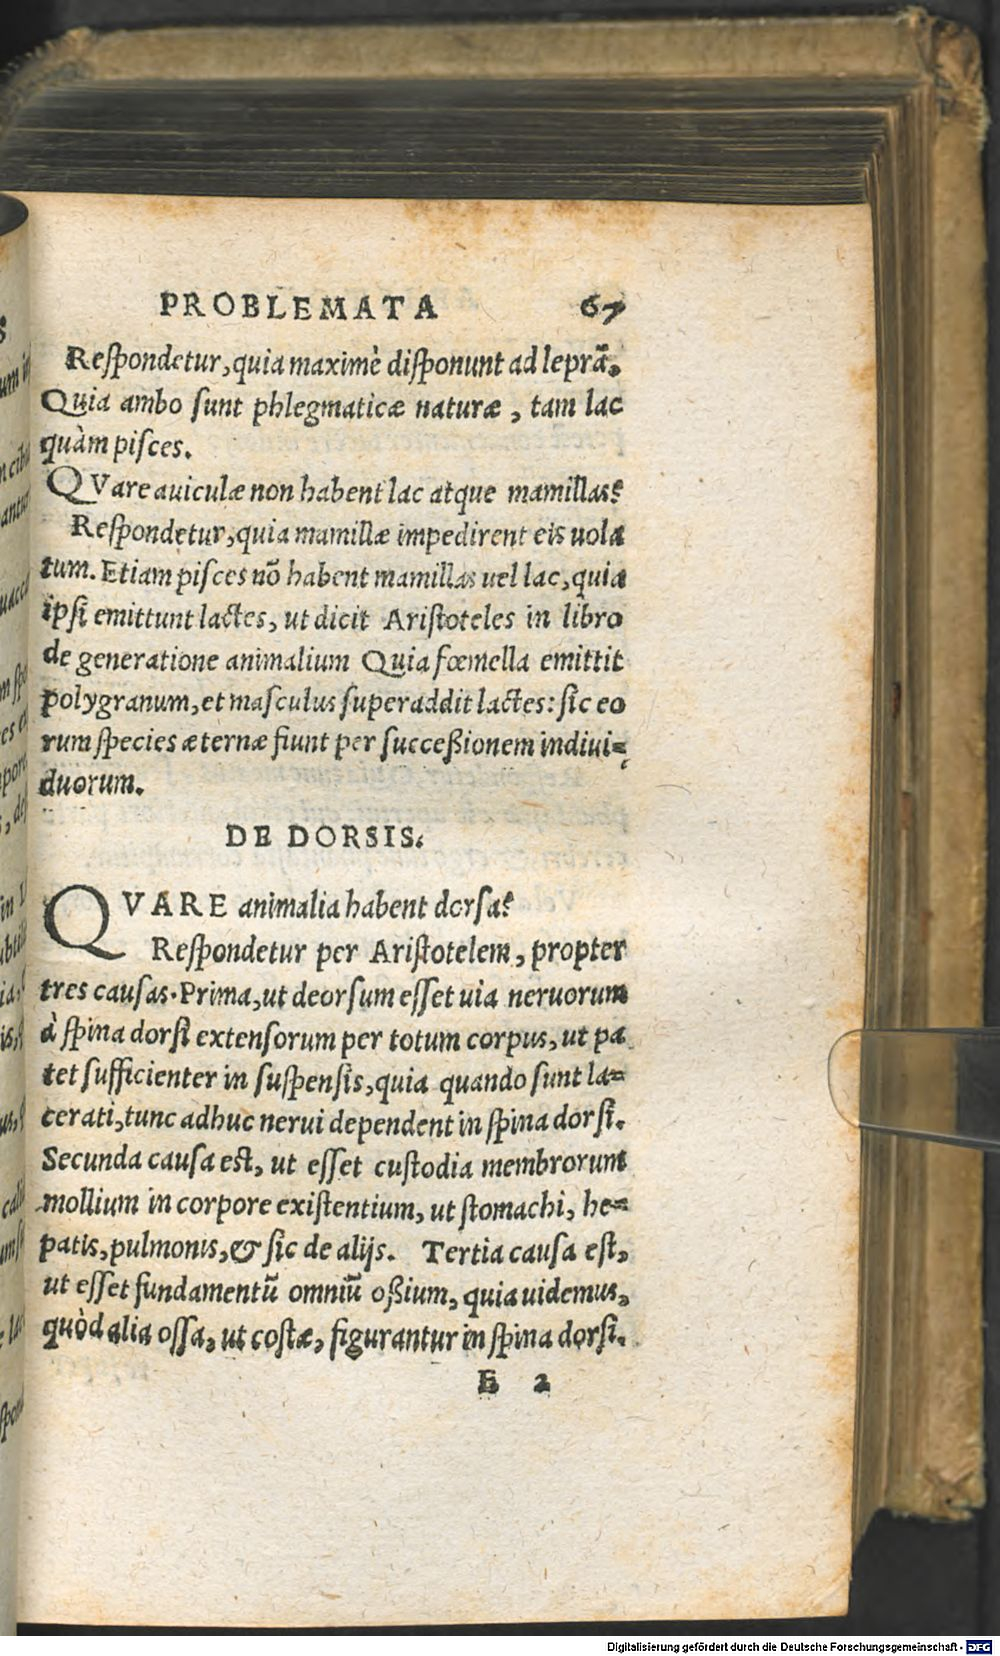 PROBLEMATA 67
Respondetur, quia maximè disponunt ad leprã.
Quia ambo sunt phlegmaticæ naturæ, tam lac
quàm pisces.
QVare auiculæ non habent lac atque mamillas?
Respondetur, quia mamillæ impedirent eis uola
tum. Etiam pisces nõ habent mamillas uel lac, quia
ipsi emittunt lactes, ut dicit Aristoteles in libro
de generatione animalium Quia fœmella emittit
polygranum, et masculus superaddit lactes: sic eo
rum species æternæ fiunt per successionem indiui=
duorum.
DE DORSIS.
QVARE animalia habent dorsa?
Respondetur per Aristotelem, propter
tres causas. Prima, ut deorsum esset uia neruorum
à spina dorsi extensorum per totum corpus, ut pa
tet sufficienter in suspensis, quia quando sunt la=
cerati, tunc adhuc nerui dependent in spina dorsi.
Secunda causa est, ut esset custodia membrorum
mollium in corpore existentium, ut stomachi, he=
patis, pulmonis, & sic de alijs. Tertia causa est,
ut esset fundamentũ omniũ ossium, quia uidemus,
quòd alia ossa, ut costæ, figurantur in spina dorsi.
E 2
Digitalisierung gefördert durch die Deutsche Forschungsgemeinschaft - DFG